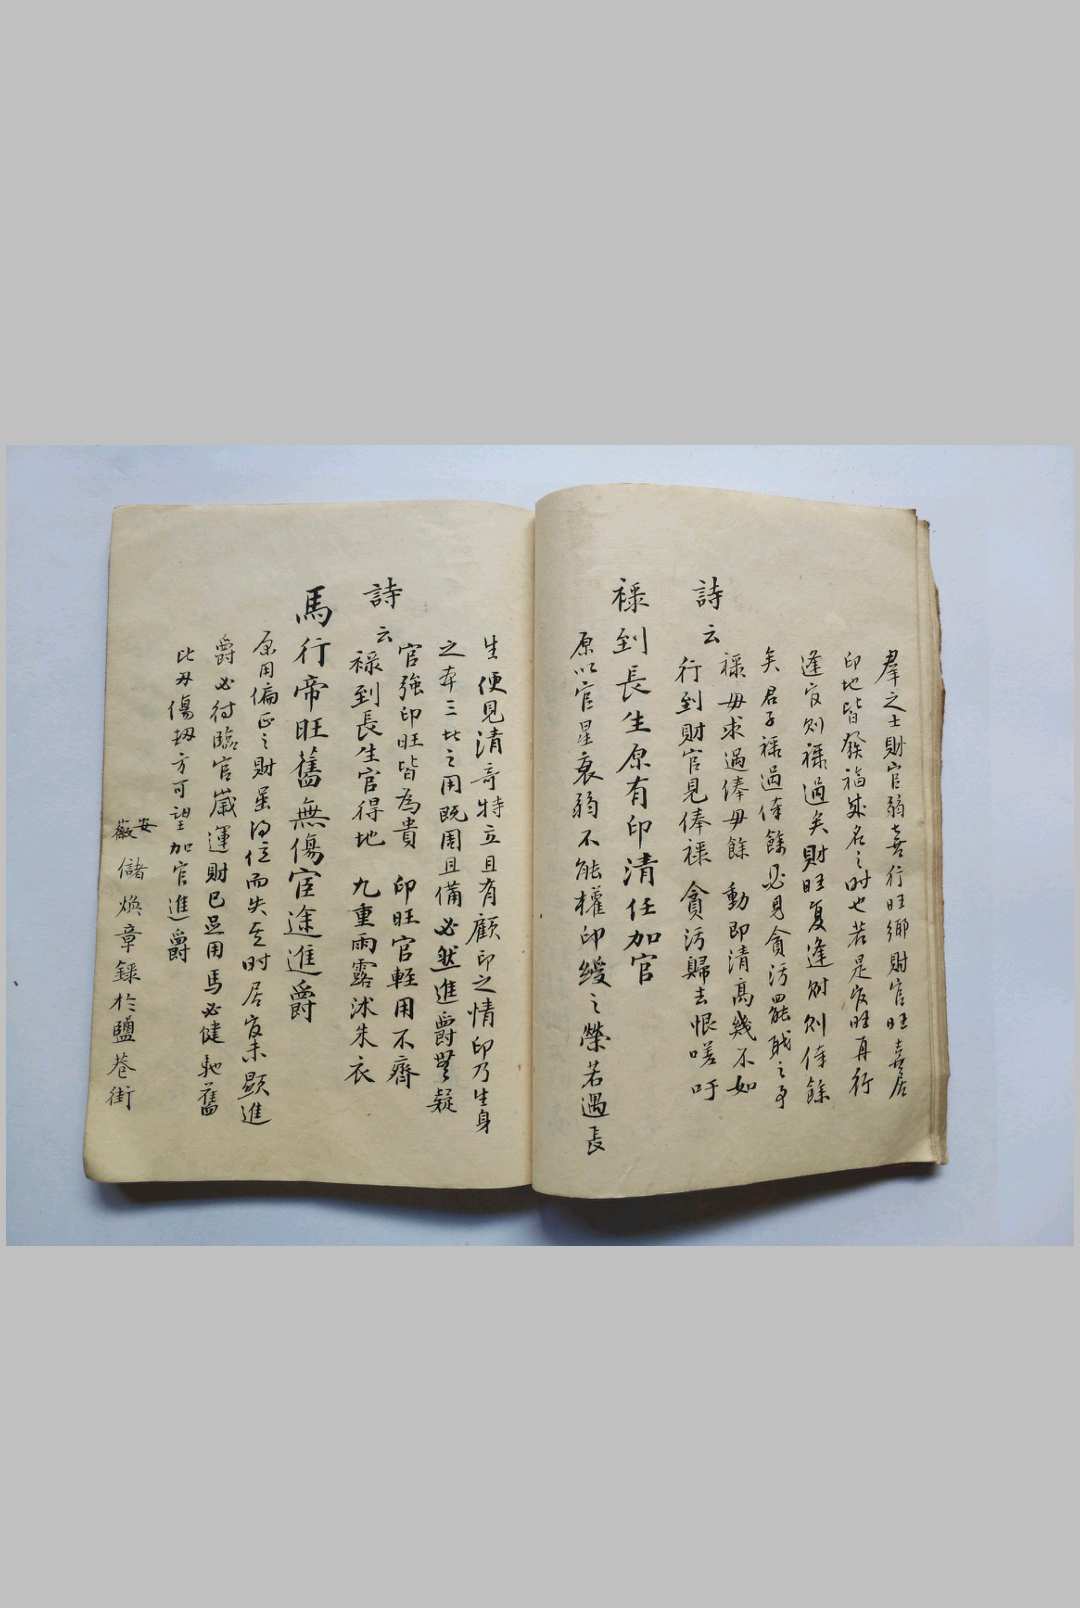 羣之士財官弱喜行旺鄉財官旺喜居
印地皆發福成名之时也若是官旺再行
逢官则祿過矣財旺复逢财则俸餘
矣君子祿過俸餘必見貪污罷職之事
詩云
祿毋求過俸毋餘 動即清高幾不如
行到財官見俸祿 貪污歸去恨嗟吁
祿到長生原有印清任加官
原以官星衰弱不能權印綬之榮若遇長
生便見清奇特立且有顧印之情印乃生身
之本三者之用既周且備必然進爵無疑
詩云
官強印旺皆為貴 印旺官輕用不齊
祿到長生官得地 九重雨露沐朱衣
馬行帝旺舊無傷宦途進爵
原用偏正之財虽得位而失其时居官未顯進
爵必待臨官嵗運財已並用馬必健馳舊
比毋傷刼方可望加官進爵
安薇儲煥章録於鹽巷街